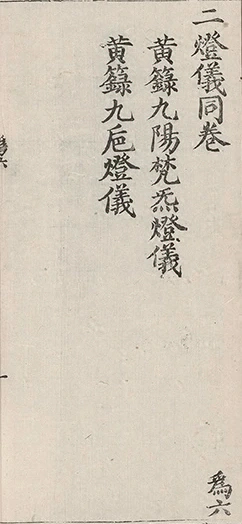 二燈儀同卷
黃籙九陽梵炁燈儀
黃籙九巵燈儀
爲六